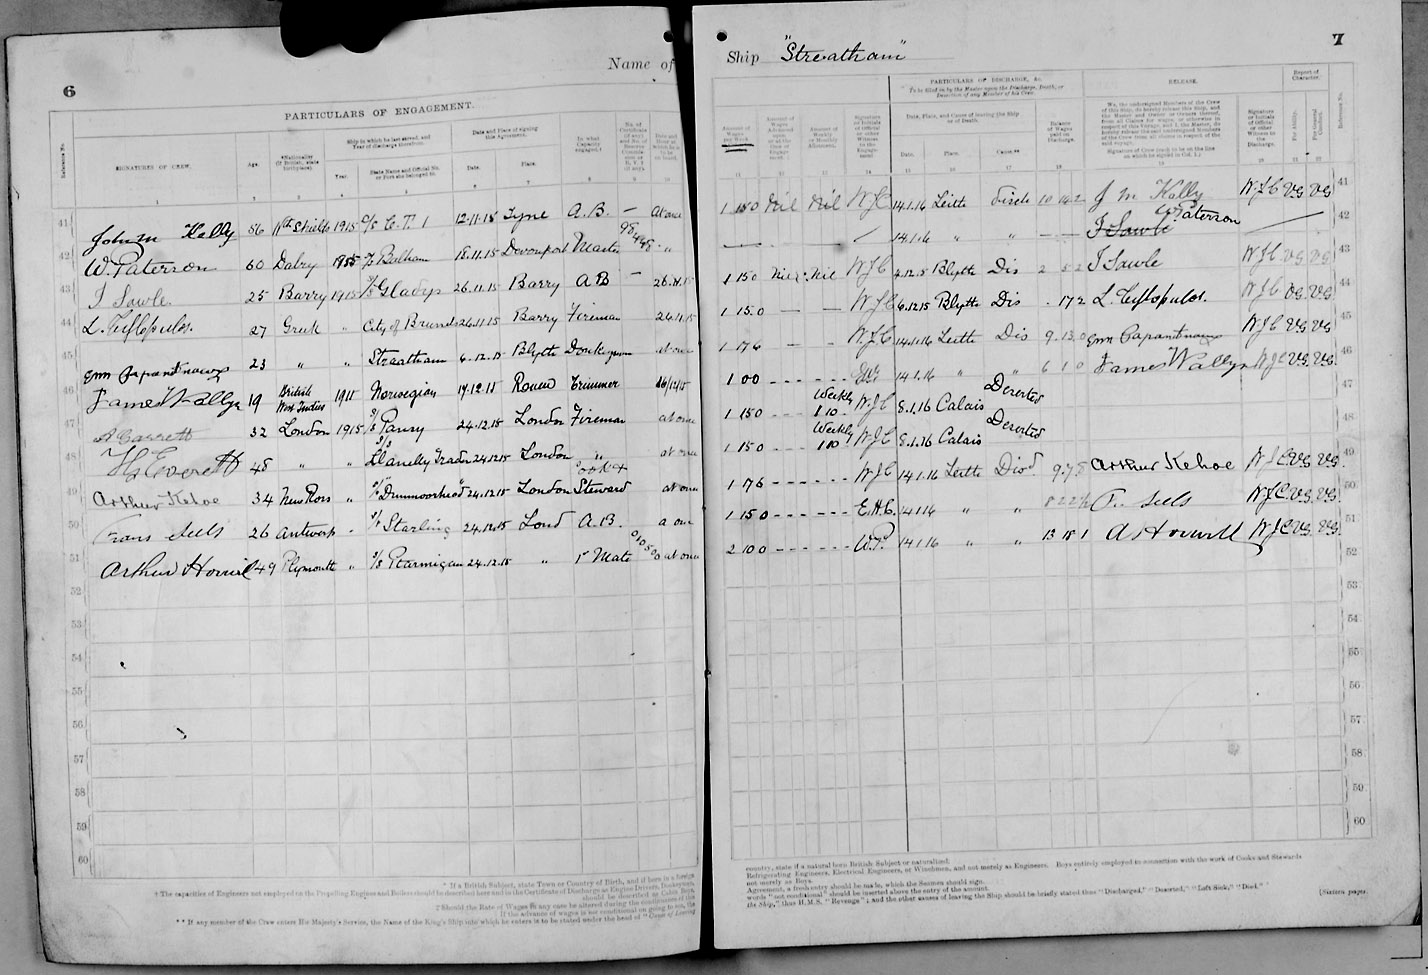 6
Name of
PARTICULARS OF ENGAGEMENT.
Reference No.
SIGNATURES OF CREW.
Age.
*Nationality (If British, state birthplace).
Ship in which he last served, and Year of discharge therefrom.
Year.
State Name and Official No. or Port she belonged to.
Date and Place of signing this Agreement.
Date.
Place.
In what Capacity engaged.†
41 John M Kelly 56 Nth Shields 1915 C.T. 1 12.11.15 Tyne A.B. — At once
42 W. Paterson 60 Dalry 1915 S/S Balham 18.11.15 Devonport Master "
43 J Sawle 25 Barry 1915 S/S Gladys 26.11.15 Barry A B — 26.11.15
44 27 Greek " City of 26.11.15 Barry Fireman 26.11.15
45 23 " " Streatham 6.12.15 Blyth Donkeyman at once
46 James Wallyn 19 British West Indies 1915 Norwegian 17.12.15 Rouen Trimmer 16/12/15
47 A Garrett 32 London 1915 S/S 24.12.15 London Fireman at once
48 Everett 48 " " S/S Llanelly Trader 24.12.15 London " at once
49 Arthur Kehoe 34 New Ross " S/S "Drummoorhead" 24.12.15 London Cook & Steward at once
50 Frans Sels 26 Antwerp " S/S Starling 24.12.15 Lond A.B. a once
51 Arthur 49 Plymouth " S/S Ptarmigan 24.12.15 " 1st Mate at once
52
53
54
55
56
57
58
59
60
* If a British Subject, state Town or Country of Birth, and if born in a foreign
† The capacities of Engineers not employed on the Propelling Engines and Boilers should be described here and in the Certificate of Discharge as Engine Drivers, Donkeymen,
should be described as Cabin Boys,
‡ Should the Rate of Wages in any case be altered during the continuance of this
If the advance of wages is not conditional on going to sea, the
** If any member of the Crew enters His Majesty's Service, the Name of the King's Ship into which he enters is to be stated under the head of "Cause of Leaving
7
Ship "Streatham"
PARTICULARS OF DISCHARGE, &c.
To be filled in by the Master upon the Discharge, Death, or Desertion of any Member of his Crew.
RELEASE.
Report of Character.
Amount of Wages per Week
Amount of Wages Advanced upon or at the time of Engagement.
Amount of Weekly or Monthly Allotment.
Signature or Initials of Official or other Witness to the Engagement
Date, Place, and Cause of leaving the Ship or of Death.
Date.
Place.
Cause.**
Balance of Wages paid on Discharge.
We, the undersigned Members of the Crew of this Ship, do hereby release this Ship, and the Master and Owner or Owners thereof, from all Claims for wages or otherwise in respect of this Voyage, and I, the Master, do hereby release the undersigned Members of the Crew from all claims in respect of the said voyage.
Signature of Crew (each to be on the line on which he signed in Col. 1.)
Signature or Initials of Official or other Witness to the Discharge.
For Ability.
For General Conduct.
Reference No.
1 15 0 Nil Nil WJC 14.1.16 Leith 10 J M Kelly WJC VG VG 41
14.1.16 " " — — W Paterson J Sawle 42
1 15 0 Nil Nil WJC 4.12.15 Blyth Dis 2 5 2 J Sawle WJC VG VG 43
1 15 0 — — WJC 6.12.15 Blyth Dis . 17 2 WJC VG VG 44
1 17 6 — — WJC 14.1.16 Leith Dis 9 13 0 WJC VG VG 45
1 0 0 14.1.16 " " 6 1 0 James Wallyn WJC VG VG 46
1 15 0 Weekly 1 10 WJC 8.1.16 Calais Deserted 47
1 15 0 Weekly 1 10 WJC 8.1.16 Calais Deserted 48
1 17 6 WJC 14.1.16 Leith Disd 9 7 8 Arthur Kehoe WJC VG VG 49
1 15 0 E.H.C. 14.1.16 " " 8 2 2½ Fr. Sels WJC VG VG 50
2 10 0 W.P. 14.1.16 " " 13 18 1 WJC VG VG 51
52
53
54
55
56
57
58
59
60
country, state if a natural born British Subject or naturalized;
Refrigerating Engineers, Electrical Engineers, or Winchmen, and not merely as Engineers. Boys entirely employed in connection with the work of Cooks and Stewards
not merely as Boys.
Agreement, a fresh entry should be made, which the Seamen should sign.
words "not conditional" should be inserted above the entry of the amount.
the Ship," thus H.M.S. "Revenge"; and the other causes of leaving the Ship should be briefly stated thus "Discharged," "Deserted," "Left Sick," "Died."
[Sixteen pages.